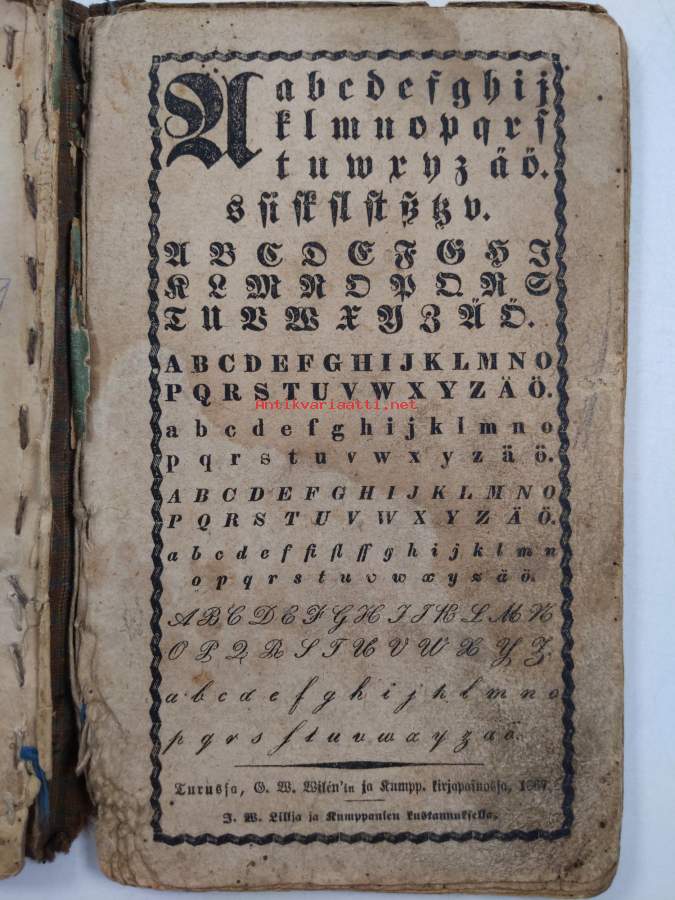 A a b c d e f g h i j
k l m n o p q r ſ
t u w x y z ä ö.
s ſi ſk ſl ſt ß tz v.
A B C D E F G H I
K L M N O P Q R S
T U V W X Y Z Ä Ö.
A B C D E F G H I J K L M N O
P Q R S T U V W X Y Z Ä Ö.
Antikvariaatti.net
a b c d e f g h i j k l m n o
p q r s t u v w x y z ä ö.
A B C D E F G H I J K L M N O
P Q R S T U V W X Y Z Ä Ö.
a b c d e f fi fl ff g h i j k l m n
o p q r s t u v w x y z ä ö.
A B C D E F G H I J K L M N
O P Q R S T U V W X Y Z
a b c d e f g h i j k l m n o
p q r s ſ t u v w x y z ä ö.
Turusſa, G. W. Wilén'in ja Kumpp. kirjapainosſa, 1867.
J. W. Lillja ja Kumppanien kustannukſella.